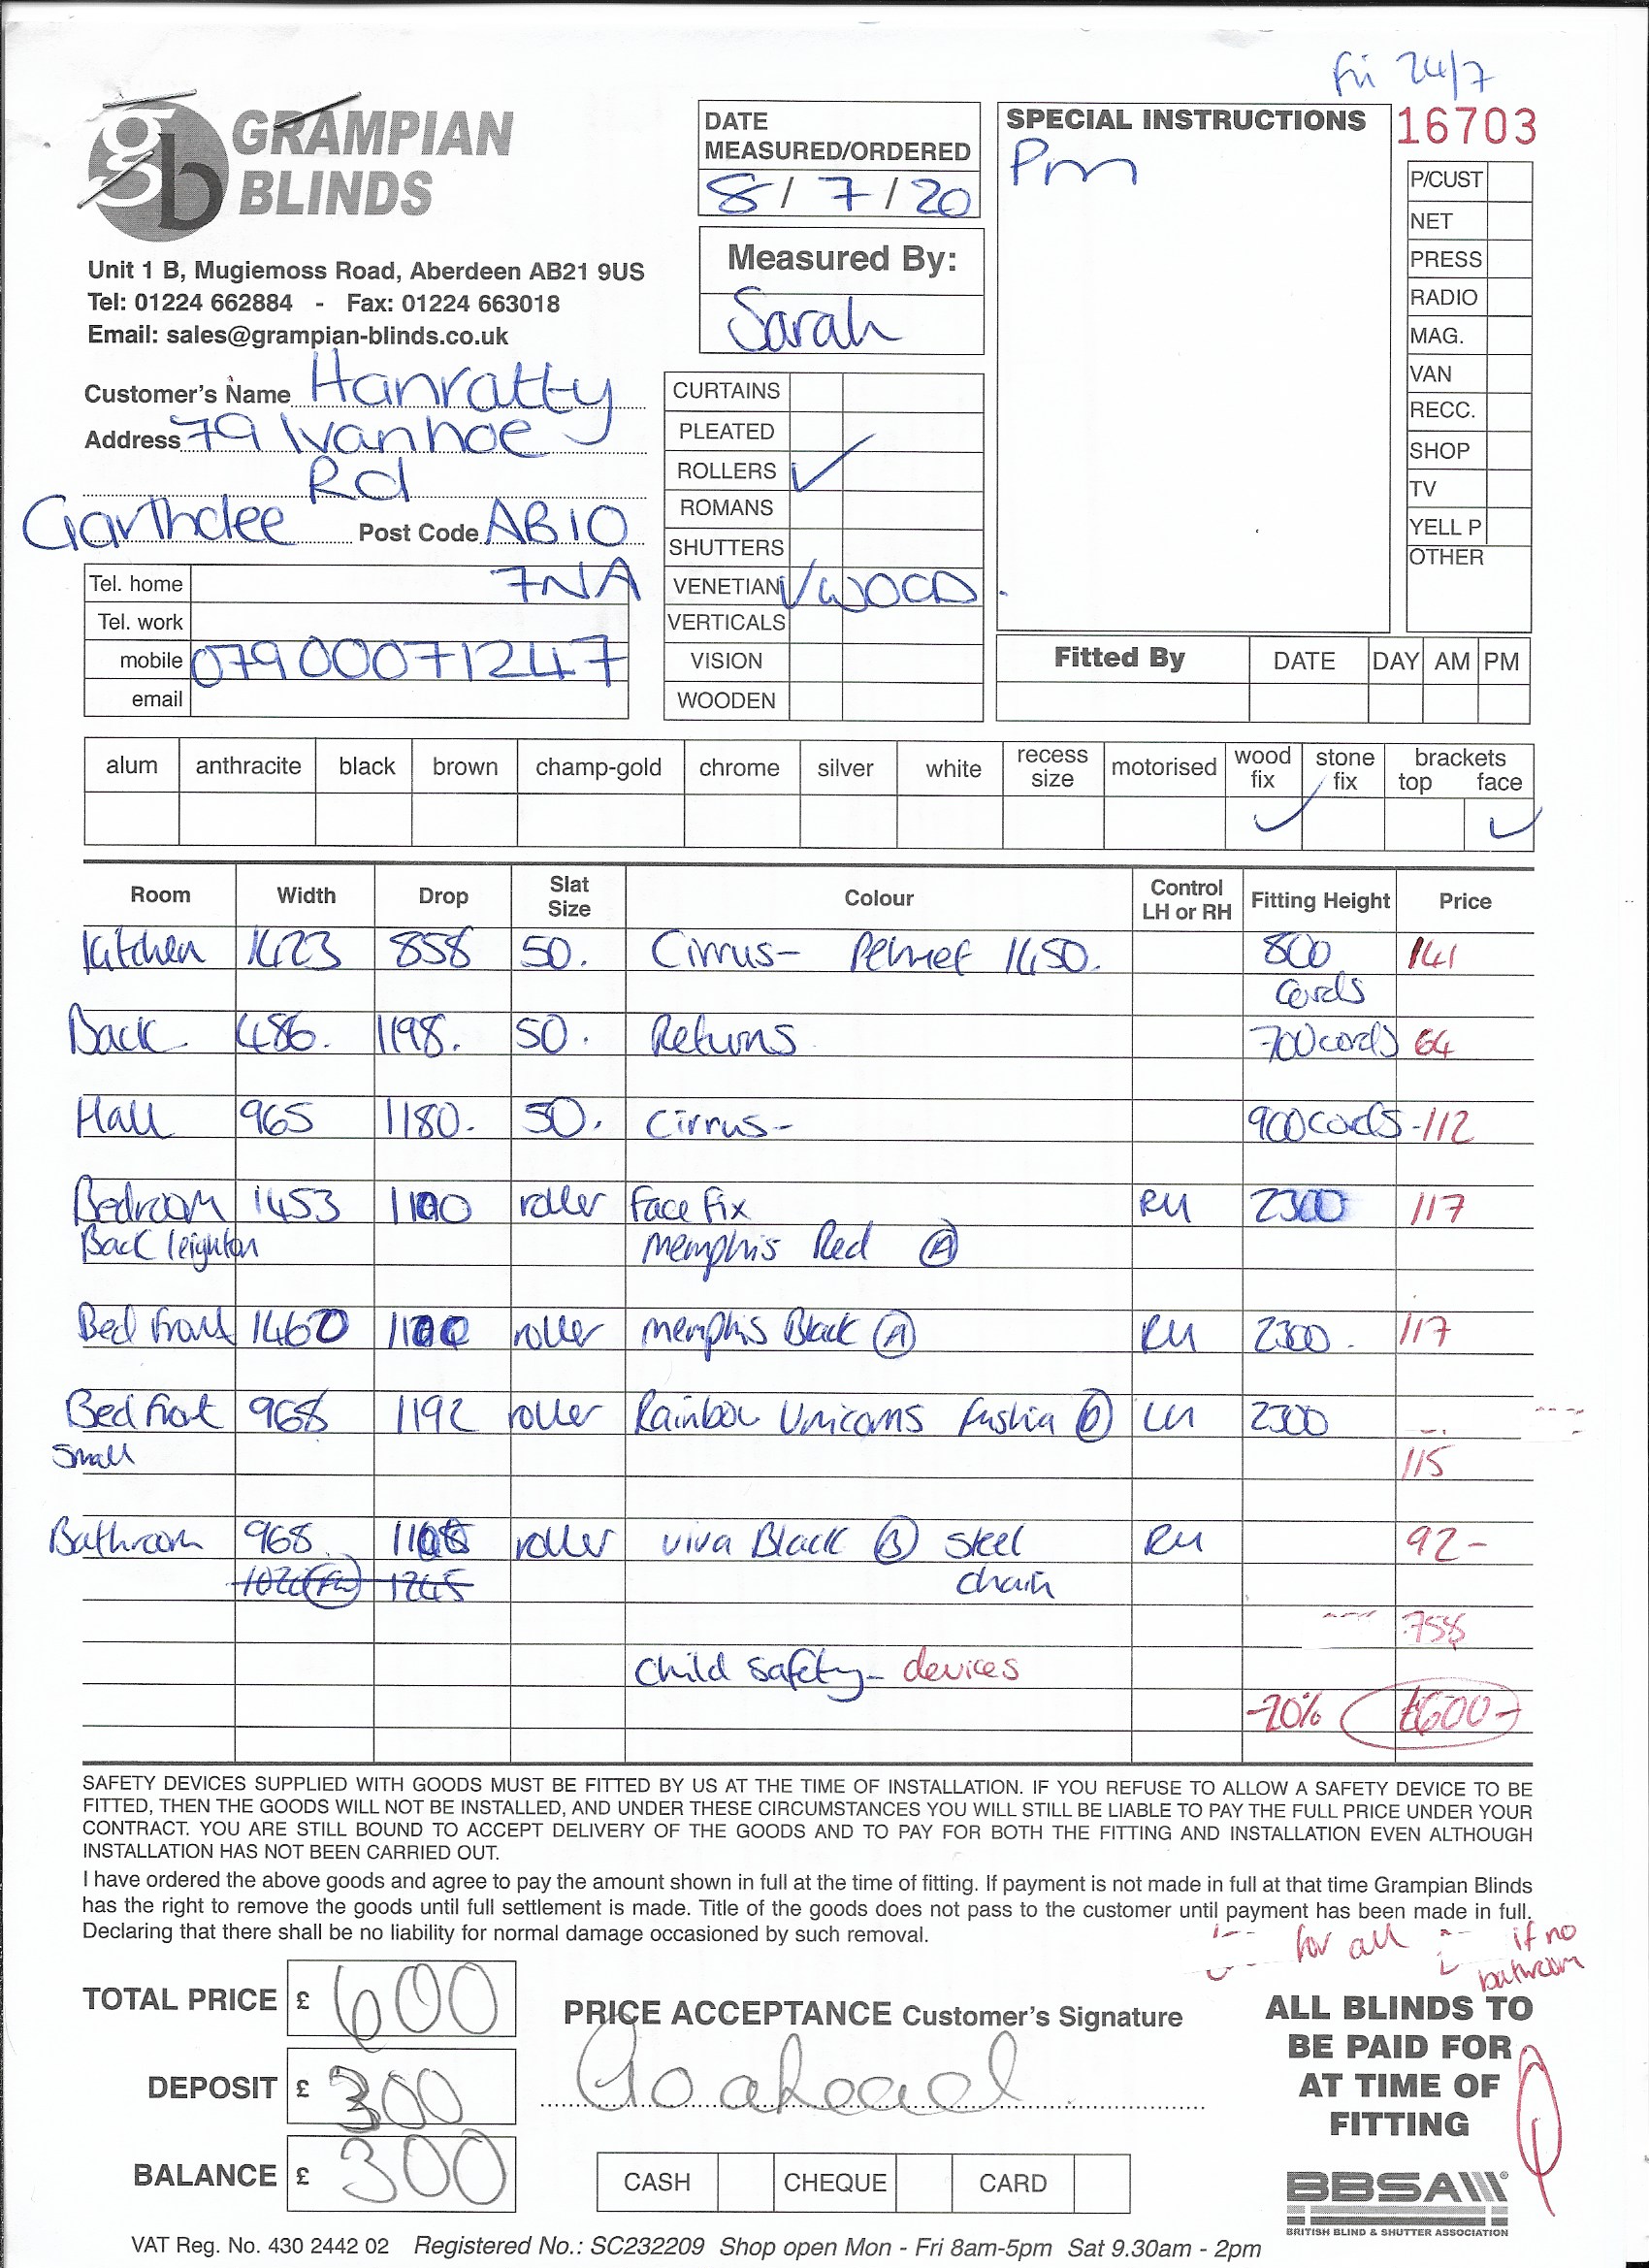 Fri 24/7
gb GRAMPIAN BLINDS
Unit 1 B, Mugiemoss Road, Aberdeen AB21 9US
Tel: 01224 662884 - Fax: 01224 663018
Email: sales@grampian-blinds.co.uk
DATE MEASURED/ORDERED
8 / 7 / 20
Measured By:
Sarah
SPECIAL INSTRUCTIONS
Pm
16703
P/CUST
NET
PRESS
RADIO
MAG.
VAN
RECC.
SHOP
TV
YELL P
OTHER
Customer's Name Hanratty
Address 79 Ivanhoe
Rd
Garthdee Post Code AB10
7NA
Tel. home
Tel. work
mobile 07900071247
email
CURTAINS
PLEATED
ROLLERS ✓
ROMANS
SHUTTERS
VENETIAN ✓ WOOD
VERTICALS
VISION
WOODEN
Fitted By DATE DAY AM PM
alum anthracite black brown champ-gold chrome silver white recess size motorised wood fix stone fix brackets top face
✓ ✓
Room Width Drop Slat Size Colour Control LH or RH Fitting Height Price
Kitchen 1423 858 50. Cirrus- Pelmet 1450. 800 141
cords
Back 486. 1198. 50. Returns 700 cords 64
Hall 965 1180. 50. Cirrus- 900 cords -112
Bedroom 1453 1100 roller Face Fix RH 2300 117
Back leighton Memphis Red A
Bed front 1460 1100 roller Memphis Black A RH 2300. 117
Bed front 968 1192 roller Rainbow Unicorns Fushia LH 2300
Small 115
Bathroom 968 roller Viva Black B Steel RH 92-
1245 chain
758
Child Safety- devices
-20% £600-
SAFETY DEVICES SUPPLIED WITH GOODS MUST BE FITTED BY US AT THE TIME OF INSTALLATION. IF YOU REFUSE TO ALLOW A SAFETY DEVICE TO BE
FITTED, THEN THE GOODS WILL NOT BE INSTALLED, AND UNDER THESE CIRCUMSTANCES YOU WILL STILL BE LIABLE TO PAY THE FULL PRICE UNDER YOUR
CONTRACT. YOU ARE STILL BOUND TO ACCEPT DELIVERY OF THE GOODS AND TO PAY FOR BOTH THE FITTING AND INSTALLATION EVEN ALTHOUGH
INSTALLATION HAS NOT BEEN CARRIED OUT.
I have ordered the above goods and agree to pay the amount shown in full at the time of fitting. If payment is not made in full at that time Grampian Blinds
has the right to remove the goods until full settlement is made. Title of the goods does not pass to the customer until payment has been made in full.
Declaring that there shall be no liability for normal damage occasioned by such removal.
for all if no
bathroom
TOTAL PRICE £ 600
DEPOSIT £ 300
BALANCE £ 300
PRICE ACCEPTANCE Customer's Signature
Goahead
CASH CHEQUE CARD
ALL BLINDS TO
BE PAID FOR
AT TIME OF
FITTING
BBSA
BRITISH BLIND & SHUTTER ASSOCIATION
VAT Reg. No. 430 2442 02 Registered No.: SC232209 Shop open Mon - Fri 8am-5pm Sat 9.30am - 2pm